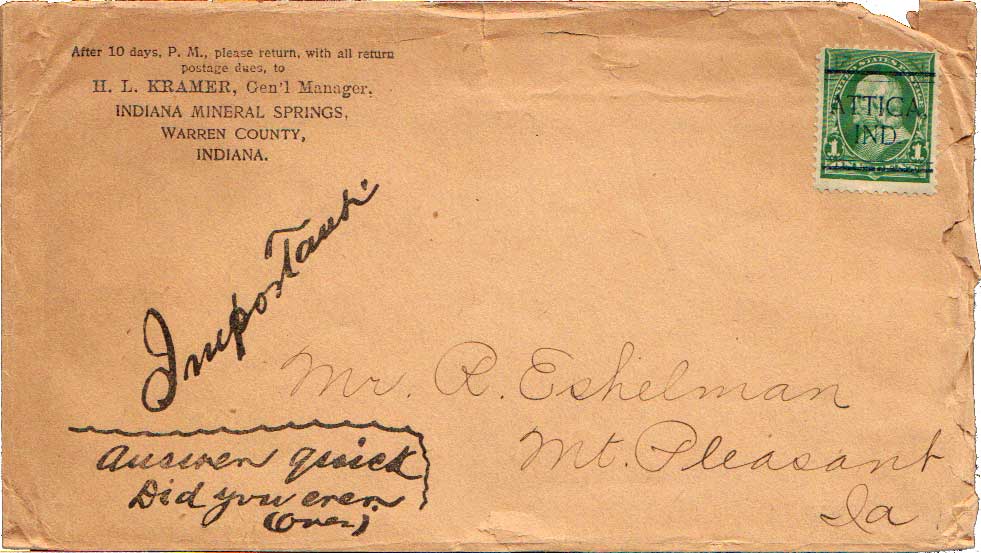 After 10 days, P. M., please return, with all return
postage dues, to
H. L. KRAMER, Gen'l Manager,
INDIANA MINERAL SPRINGS,
WARREN COUNTY,
INDIANA.
UNITED STATES POSTAGE
ATTICA,
IND.
1 1
Important.
Mr. R. Eshelman
Mt. Pleasant
Ia.
Answer quick
Did you ever
(over)